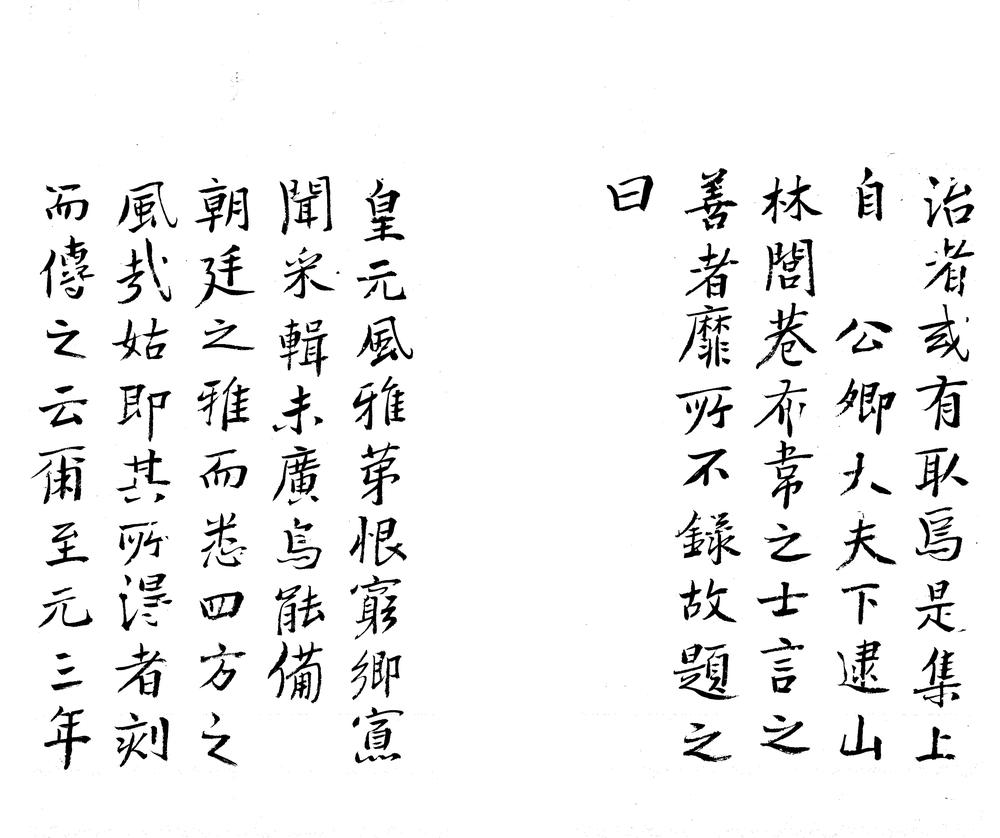 治者或有取焉是集上
自　公卿大夫下逮山
林閭巷布韋之士言之
善者靡所不錄故題之
曰
皇元風雅苐恨窮鄉寡
聞采輯未廣烏能備
朝廷之雅而悉四方之
風哉姑即其所淂者刻
而傳之云爾至元三年